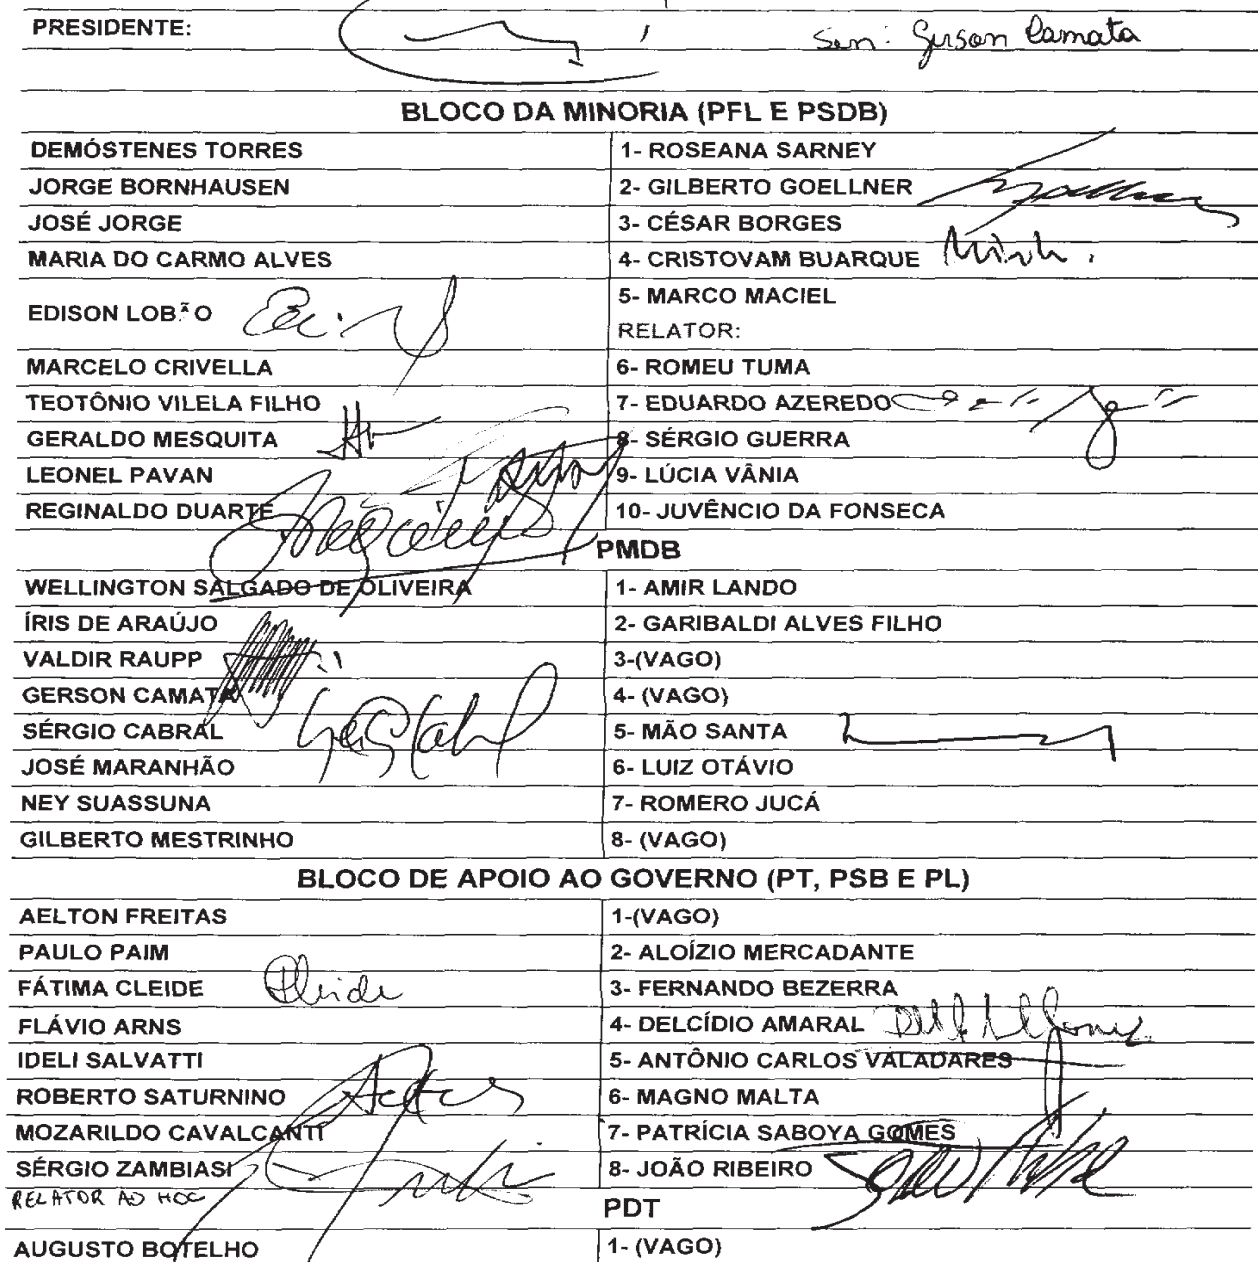 PRESIDENTE: Sen: Gerson Camata
BLOCO DA MINORIA (PFL E PSDB)
DEMÓSTENES TORRES 1- ROSEANA SARNEY
JORGE BORNHAUSEN 2- GILBERTO GOELLNER
JOSÉ JORGE 3- CÉSAR BORGES
MARIA DO CARMO ALVES 4- CRISTOVAM BUARQUE
EDISON LOBÃO 5- MARCO MACIEL
RELATOR:
MARCELO CRIVELLA 6- ROMEU TUMA
TEOTÔNIO VILELA FILHO 7- EDUARDO AZEREDO
GERALDO MESQUITA 8- SÉRGIO GUERRA
LEONEL PAVAN 9- LÚCIA VÂNIA
REGINALDO DUARTE 10- JUVÊNCIO DA FONSECA
PMDB
WELLINGTON SALGADO DE OLIVEIRA 1- AMIR LANDO
ÍRIS DE ARAÚJO 2- GARIBALDI ALVES FILHO
VALDIR RAUPP 3-(VAGO)
GERSON CAMATA 4- (VAGO)
SÉRGIO CABRAL 5- MÃO SANTA
JOSÉ MARANHÃO 6- LUIZ OTÁVIO
NEY SUASSUNA 7- ROMERO JUCÁ
GILBERTO MESTRINHO 8- (VAGO)
BLOCO DE APOIO AO GOVERNO (PT, PSB E PL)
AELTON FREITAS 1-(VAGO)
PAULO PAIM 2- ALOÍZIO MERCADANTE
FÁTIMA CLEIDE Cleide 3- FERNANDO BEZERRA
FLÁVIO ARNS 4- DELCÍDIO AMARAL
IDELI SALVATTI 5- ANTÔNIO CARLOS VALADARES
ROBERTO SATURNINO 6- MAGNO MALTA
MOZARILDO CAVALCANTI 7- PATRÍCIA SABOYA GOMES
SÉRGIO ZAMBIASI 8- JOÃO RIBEIRO
RELATOR AD HOC
PDT
AUGUSTO BOTELHO 1- (VAGO)